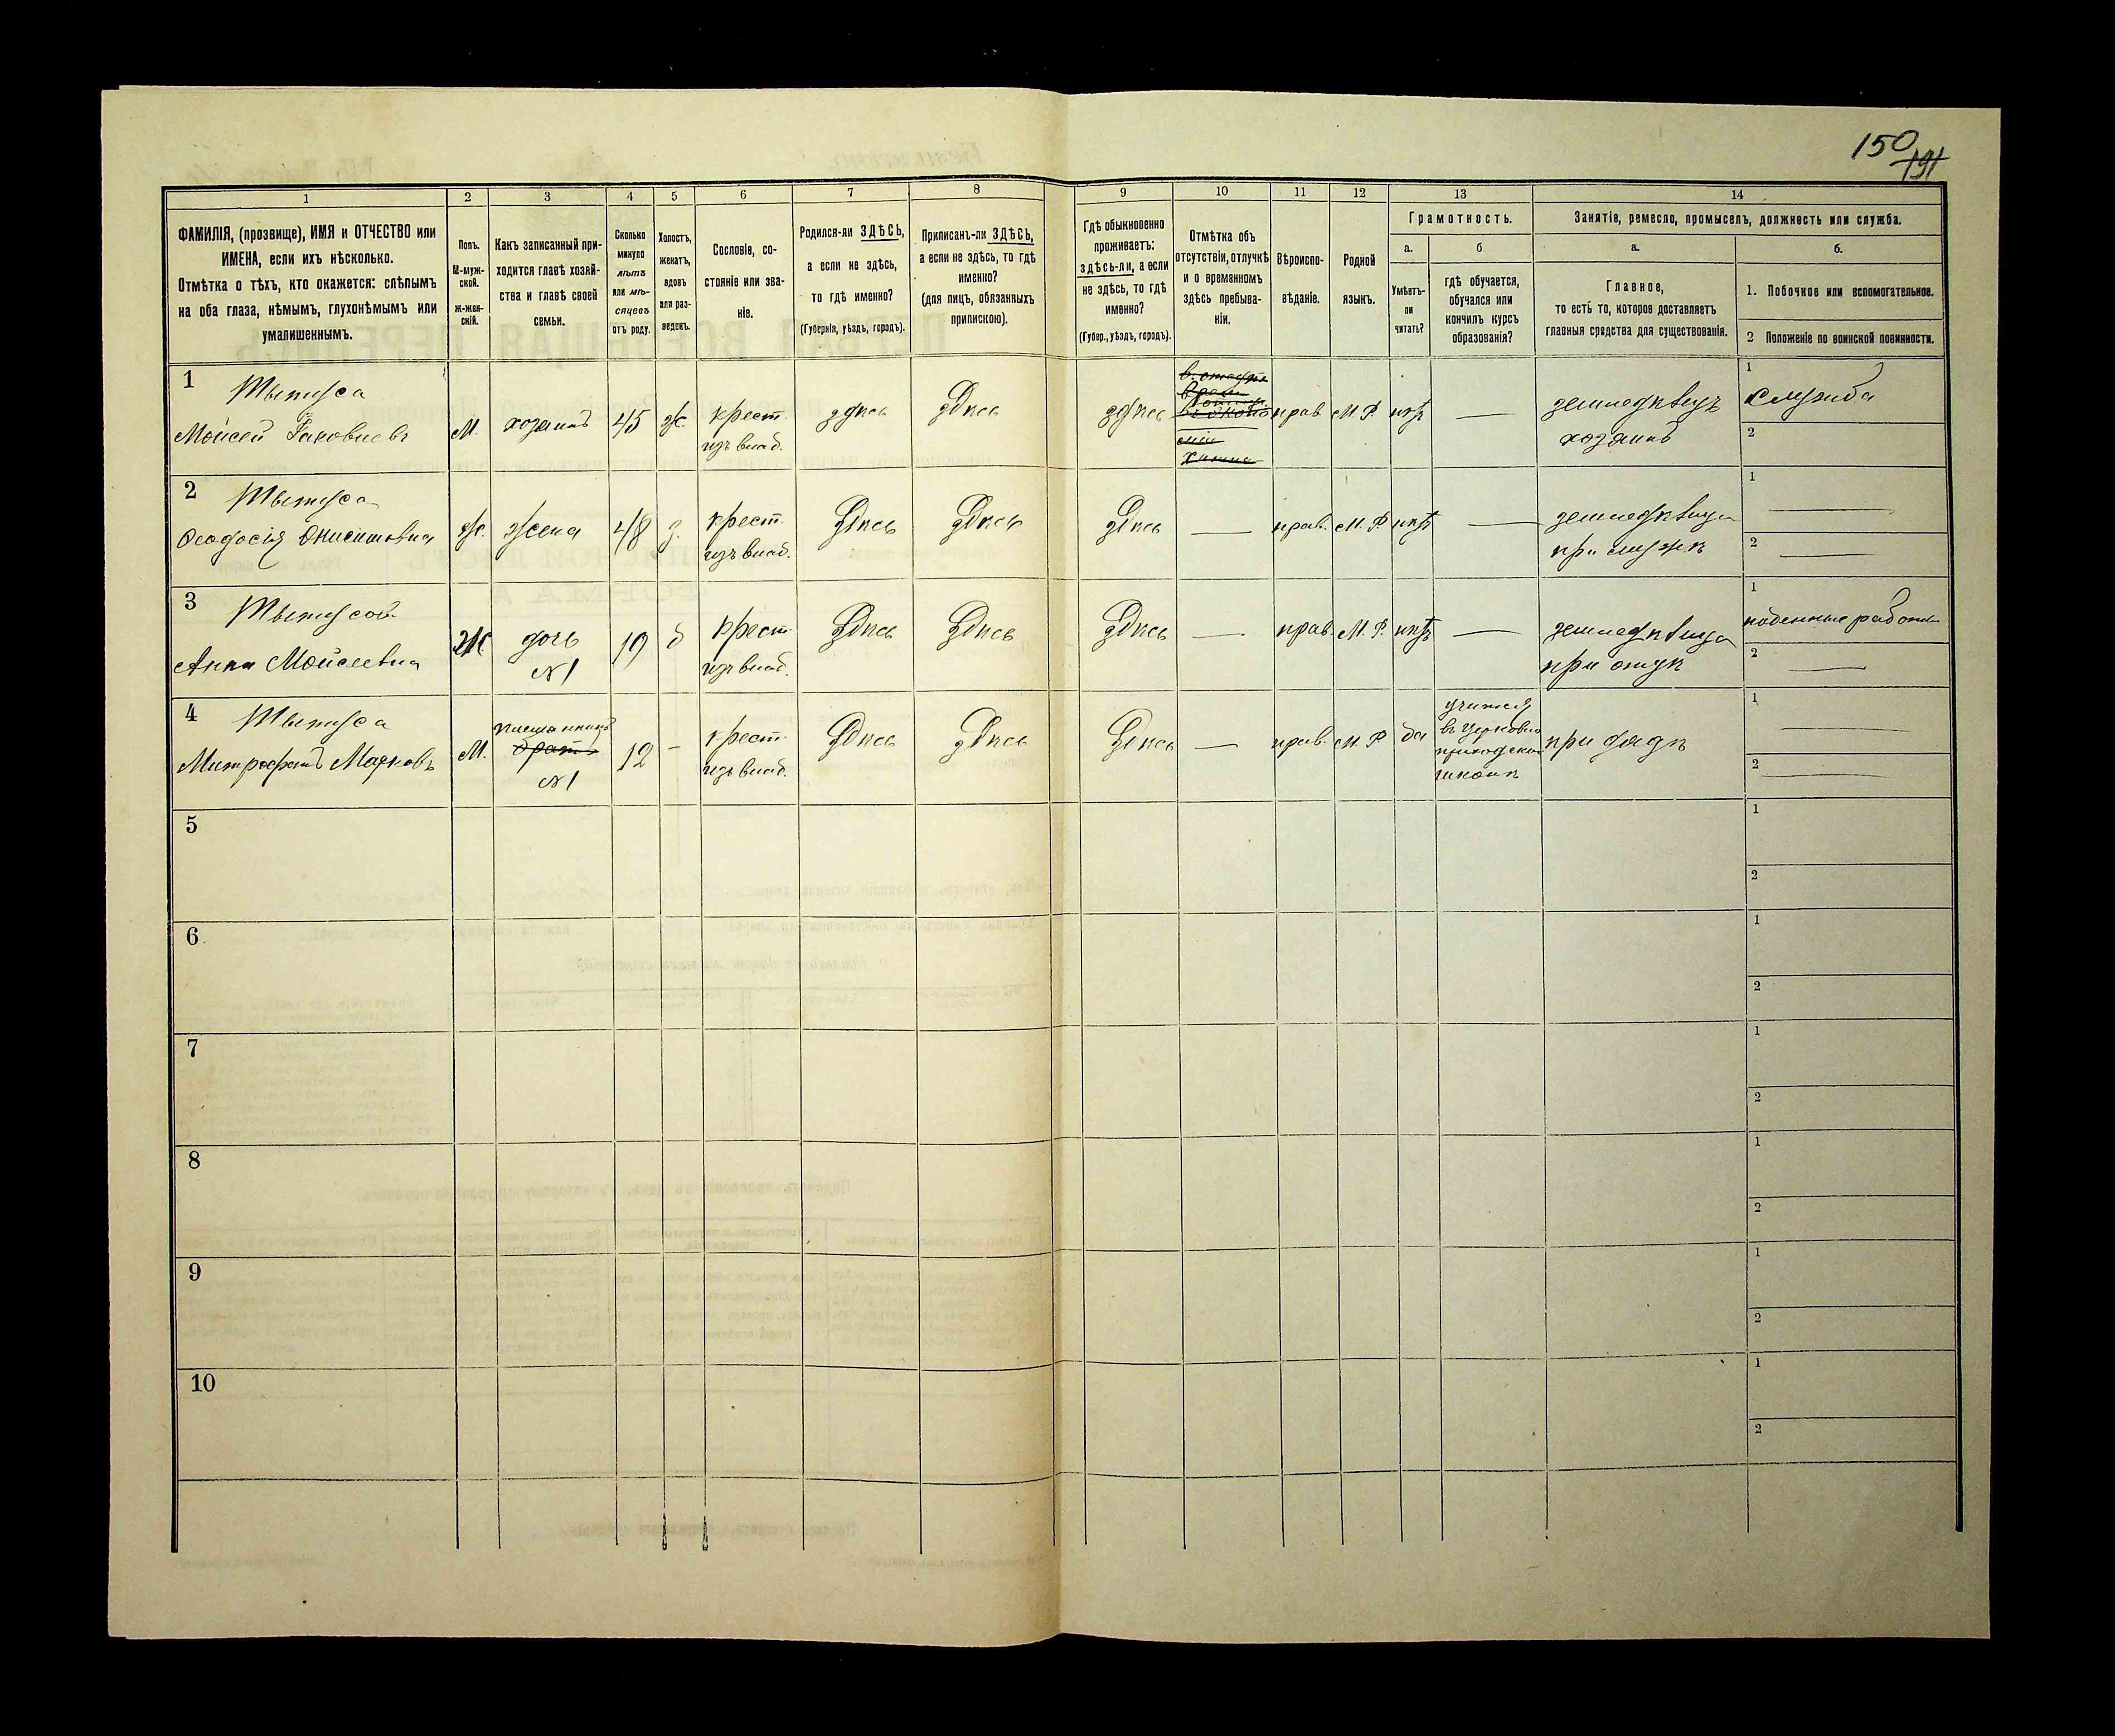 150
191
1
2
3
4
5
6
7
8
9
10
11
12
13
14
ФАМИЛІЯ, (прозвище), ИМЯ и ОТЧЕСТВО или
ИМЕНА, если ихъ нѣсколько.
Отмѣтка о тѣхъ, кто окажется: слѣпымъ
на оба глаза, нѣмымъ, глухонѣмымъ или
умалишеннымъ.
Полъ.
М-муж-
ской.
Ж-жен-
скій.
Какъ записанный при-
ходится главѣ хозяй-
ства и главѣ своей
семьи.
Сколько
минуло
лѣтъ
или мѣ-
сяцевъ
отъ роду.
Холостъ,
женатъ,
вдовъ
или раз-
веденъ.
Сословіе, со-
стояніе или зва-
ніе.
Родился-ли ЗДѢСЬ,
а если не здѣсь,
то гдѣ именно?
(Губернія, уѣздъ, городъ).
Приписанъ-ли ЗДѢСЬ,
а если не здѣсь, то гдѣ
именно?
(для лицъ, обязанныхъ
припискою).
Гдѣ обыкновенно
проживаетъ:
здѣсь-ли, а если
не здѣсь, то гдѣ
именно?
(Губер., уѣздъ, городъ).
Отмѣтка объ
отсутствіи, отлучкѣ
и о временномъ
здѣсь пребыва-
ніи.
Вѣроиспо-
вѣданіе.
Родной
языкъ.
Грамотность.
а.
Умѣетъ-
ли
читать?
б
гдѣ обучается,
обучался или
кончилъ курсъ
образованія?
Занятіе, ремесло, промыселъ, должность или служба.
а.
Главное,
то есть то, которое доставляетъ
главныя средства для существованія.
б.
1. Побочное или вспомогательное.
2 Положеніе по воинской повинности.
1
Мойсей Іаковлевъ
М. хозяинъ 45 ж. крест.
изъ влад.
здѣсь здѣсь здѣсь
прав М.Р. нѣтъ — земледѣлецъ
хозяинъ
1 служба
2
2
Ѳеодосія Онисимовна
Ж. жена 48 з. крест.
изъ влад.
здѣсь здѣсь здѣсь — прав. М.Р нѣтъ — земледѣлица
при мужѣ
1 —
2 —
3
Анна Мойсеевна
Ж дочь
№1
19 д крест.
изъ влад.
здѣсь здѣсь здѣсь — прав. М.Р. нѣтъ — земледѣлица
при отцѣ
1 поденные работы
2 —
4
Митрофанъ Марковъ
М. племянникъ
братъ
№1
12 — крест.
изъ влад.
здѣсь здѣсь здѣсь — прав. М.Р да учится
въ церковно
приходской
школѣ
при дядѣ
1 —
2 —
5
1
2
6
1
2
7
1
2
8
1
2
9
1
2
10
1
2